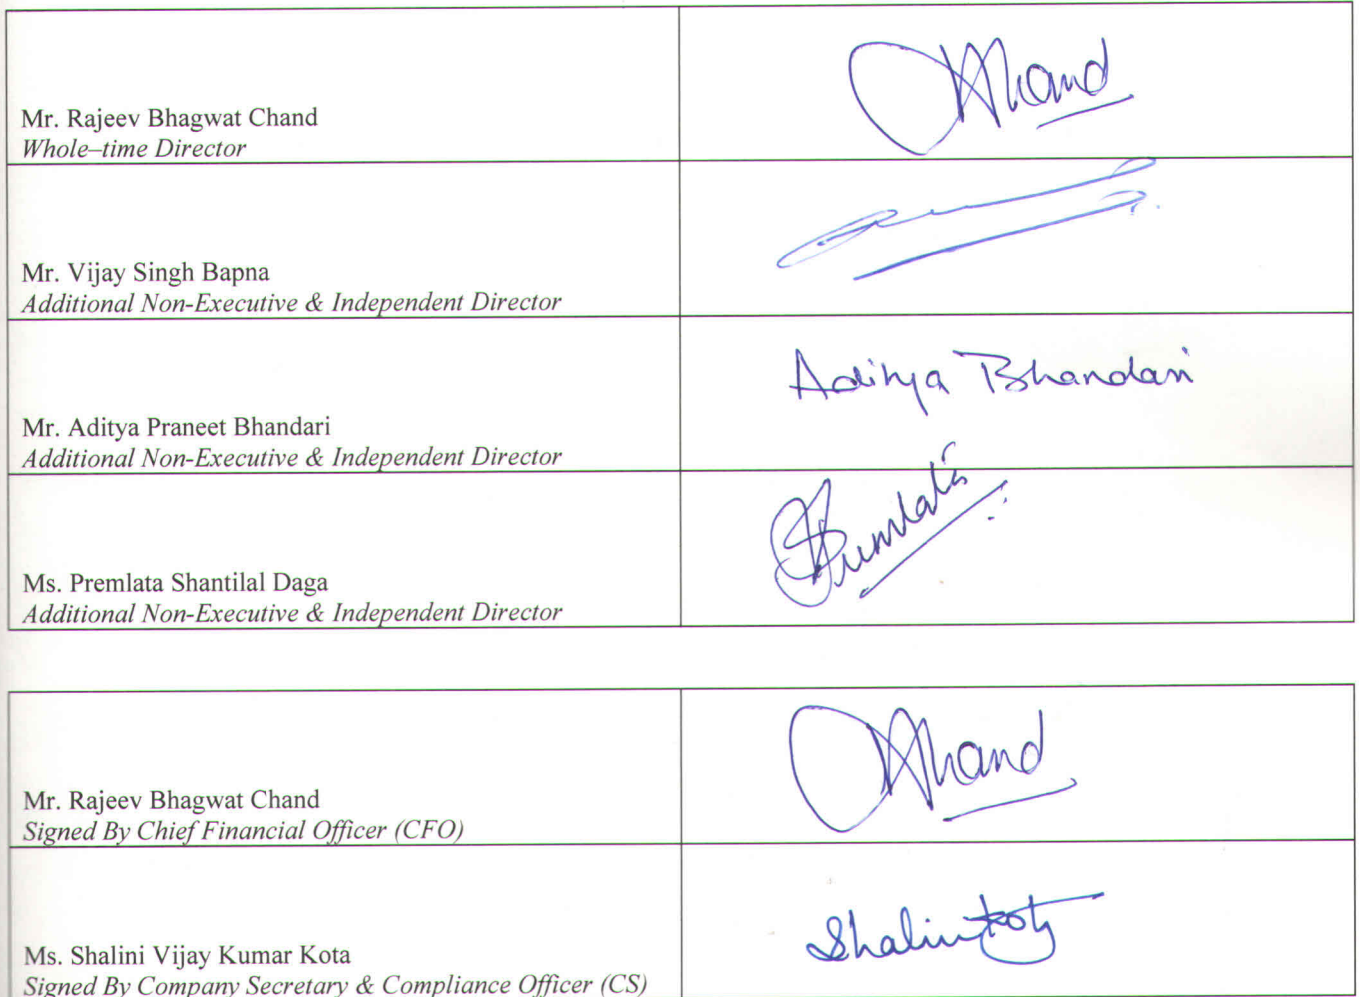 Mr. Rajeev Bhagwat Chand
Whole–time Director
Mr. Vijay Singh Bapna
Additional Non-Executive & Independent Director
Aditya Bhandari
Mr. Aditya Praneet Bhandari
Additional Non-Executive & Independent Director
Ms. Premlata Shantilal Daga
Additional Non-Executive & Independent Director
Mr. Rajeev Bhagwat Chand
Signed By Chief Financial Officer (CFO)
Ms. Shalini Vijay Kumar Kota
Signed By Company Secretary & Compliance Officer (CS)